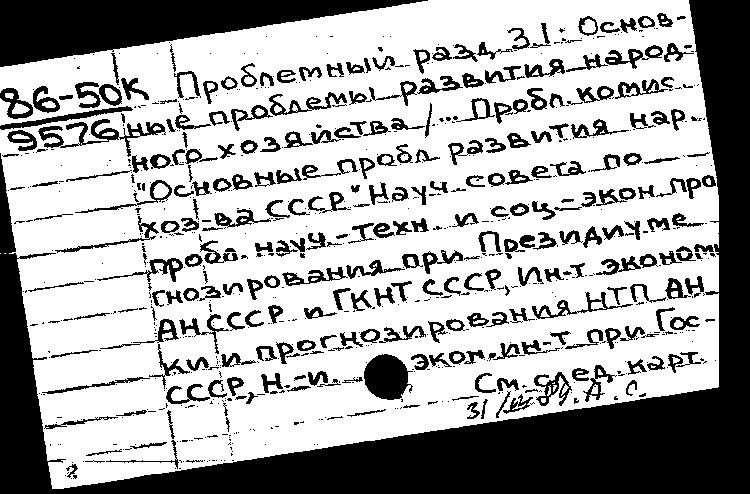 86-50К
9576
Проблемный разд. 3.1: Основ-
ные проблемы развития народ-
ного хозяйства /... Пробл. комис.
"Основные пробл. развития нар.
хоз-ва СССР" Науч. совета по
пробл. науч.-техн. и соц.-экон. про
гнозирования при Президиуме
АН СССР и ГКНТ СССР, Ин-т эконом
ки и прогнозирования НТП АН
СССР, Н.-и. экон. ин-т при Гос-
См. след. карт.
А.С.